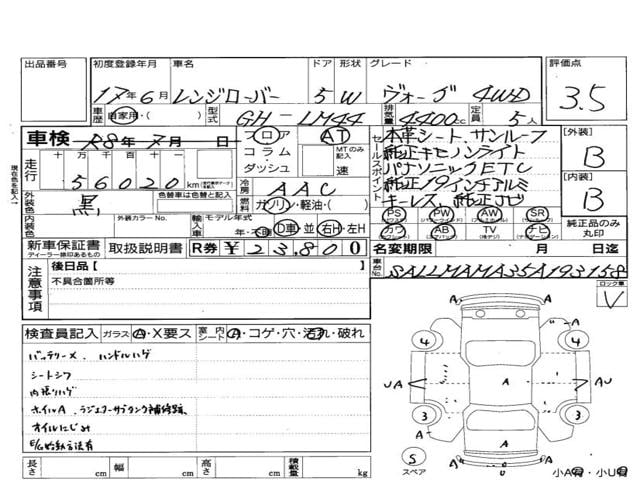 出品番号 初度登録年月 車名 ドア 形状 グレード 評価点
17年6月 レンジローバー 5 W ヴォーグ 4WD 3.5
車歴 自家用・( ) 型式 GH-LM44 排気量 4400cc 定員 5人
車検 R8年7月 日 フロア AT 本革シート、サンルーフ [外装]
走行 十万 万 千 百 十 一 コラム MTのみ記入 セールスポイント 純正キセノンライト B
56020 km ダッシュ 速 パナソニックETC
冷房 AAC 純正19インチアルミ [内装]
外装色 黒 色替車は色替と記入 燃料 ガソリン・軽油・( ) キーレス、純正ナビ B
内装色 外装カラーNo. 輸入車 モデル年式 年・不明 D車・並 右H・左H PS パワーステアリング PW パワーウィンドウ AW アルミホイール SR サンルーフ 純正品のみ丸印
カワ AB エアバッグ TV ナビ ナビゲーション
新車保証書 ディーラー捺印あるもの 取扱説明書 R券 ¥23,800 名変期限 月 日迄
注意事項 後日品【 】 車台No. SALLMAMA35A193158
不具合箇所等 ロック車
V
検査員記入 ガラス A・X要ス 室内シート A・コゲ・穴・汚れ・破れ
バッテリーメ、ハンドルハゲ
シートシワ
内張りハゲ
ホイルA、ラジエターサブタンク補修跡、
オイルにじみ
E/G始動方法有
A
A
4 4
UA A AU
3 3
A
S スペア A U A 小A有・小U有
長さ cm 幅 cm 高さ cm 積載量 kg
現在色を記入→